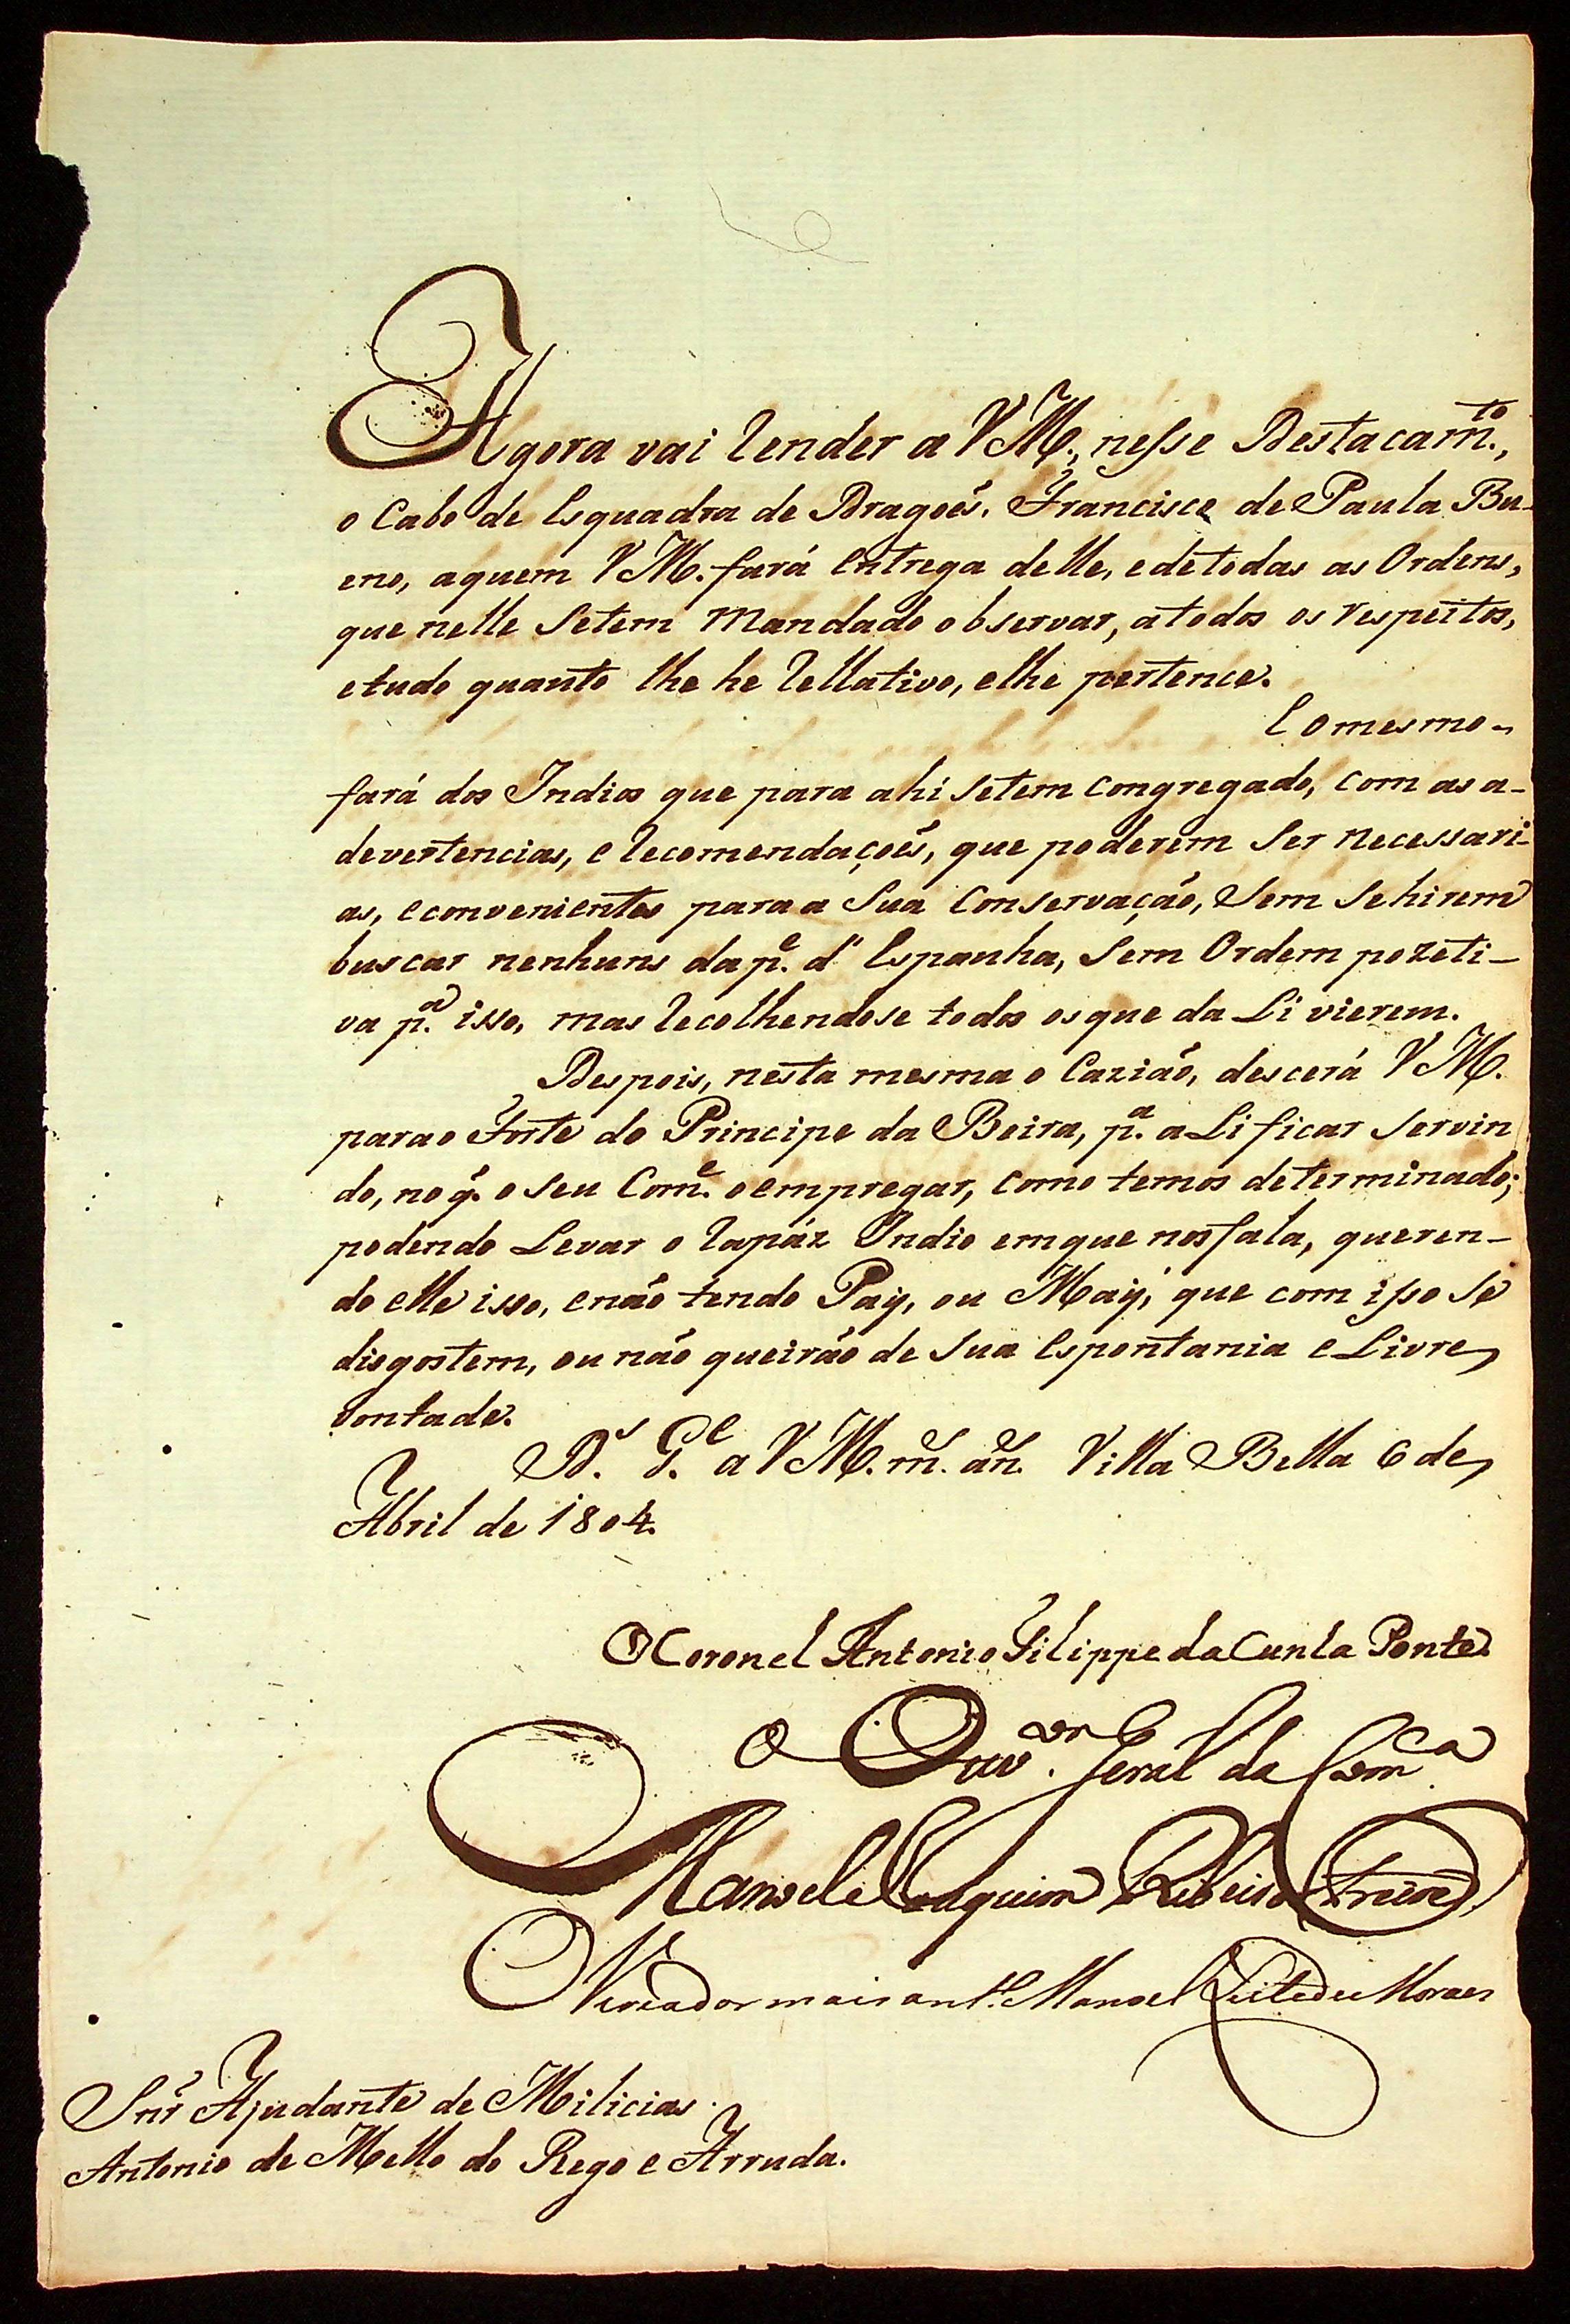 Agora vai render a VM., nesse Destacam.to,
o Cabo de Esquadra de Dragoẽs. Francisco de Paula Bu-
eno, aquem VM. fará entrega delle, e detodas as Ordens,
que nelle Setem Mandado observar, atodos os respeitos,
etudo quanto lhe he rellativo, elhe pertence.
E omesmo-
fará dos Indios que para ahi setem congregado, com as a-
devertencias, e recomendaçoẽs, que poderem Ser necessari-
as, econvenientes para a Sua Conservação, Sem Sehirem
buscar nenhuns da p.e d' Espanha, Sem Ordem pozeti-
va p.a isso, mas recolhendose todos osque da Li vierem.
Despois, nesta mesma o Cazião, descerá VM.
parao Forte do Principe da Beira, p.a aLi ficar Servin
do, no q̃. o seu Com.e oempregar, como temos determinado;
podendo Levar o rapáz Indio emque nosfala, queren-
do elle isso, enão tendo Pay, ou May, que com isso Se
disgostem, ou não queirão de Sua espontania e Livre
vontade.
D.s G.e a VM. m.s an.s Villa Bella 6 de
Abril de 1804.
O Coronel Antonio Filippe da Cunha Ponte
O Ouv.or Geral da Com.ca
Manoel Joaquim Ribeiro Freire
O Vereador mais ant.o Manoel Leite de Moraes
Snr̃ Ajudante de Milicias
Antonio de Mello do Rego e Arruda.